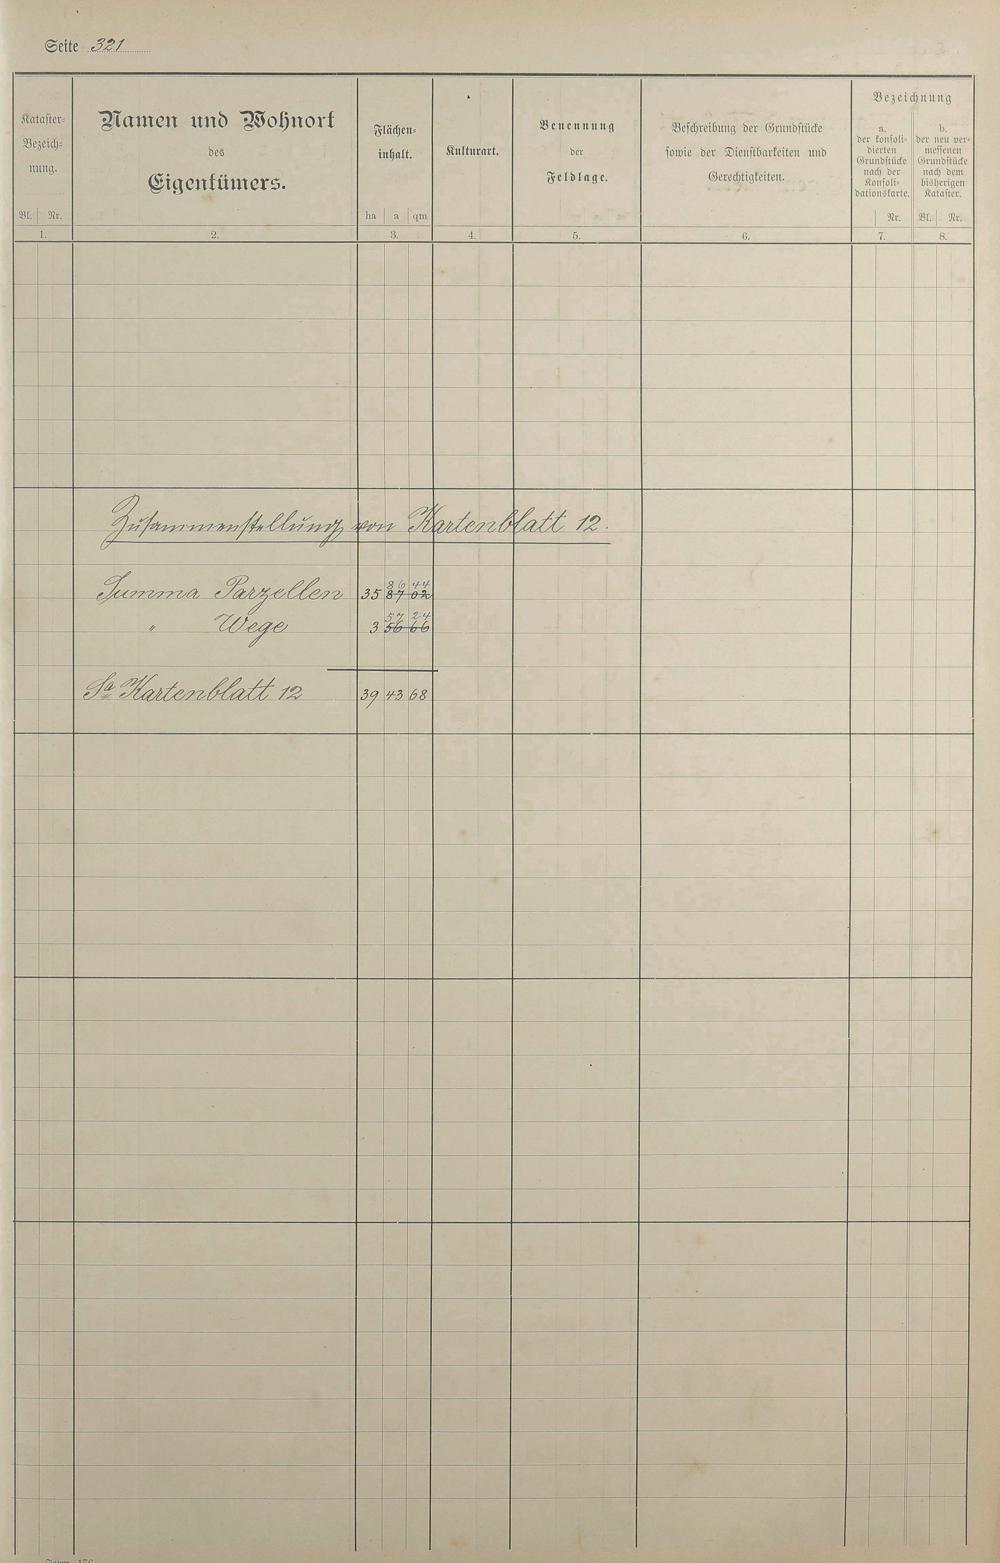 Seite 321
Kataster-
Bezeich-
nung.
Bl. Nr.
1.
Namen und Wohnort
des
Eigentümers.
2.
Flächen-
inhalt.
ha a qm
3.
Kulturart.
4.
Benennung
der
Feldlage.
5.
Beschreibung der Grundstücke
sowie der Dienstbarkeiten und
Gerechtigkeiten.
6.
Bezeichnung
a.
der konsoli-
dierten
Grundstücke
nach der
Konsoli-
dationskarte.
Nr.
7.
b.
der neu ver-
messenen
Grundstücke
nach dem
bisherigen
Kataster.
Bl. Nr.
8.
Zusammenstellung von Kartenblatt 12.
86 44
Summa Parzellen 35 87 02
57 24
" Wege 3 56 66
Sa Kartenblatt 12 39 43 68